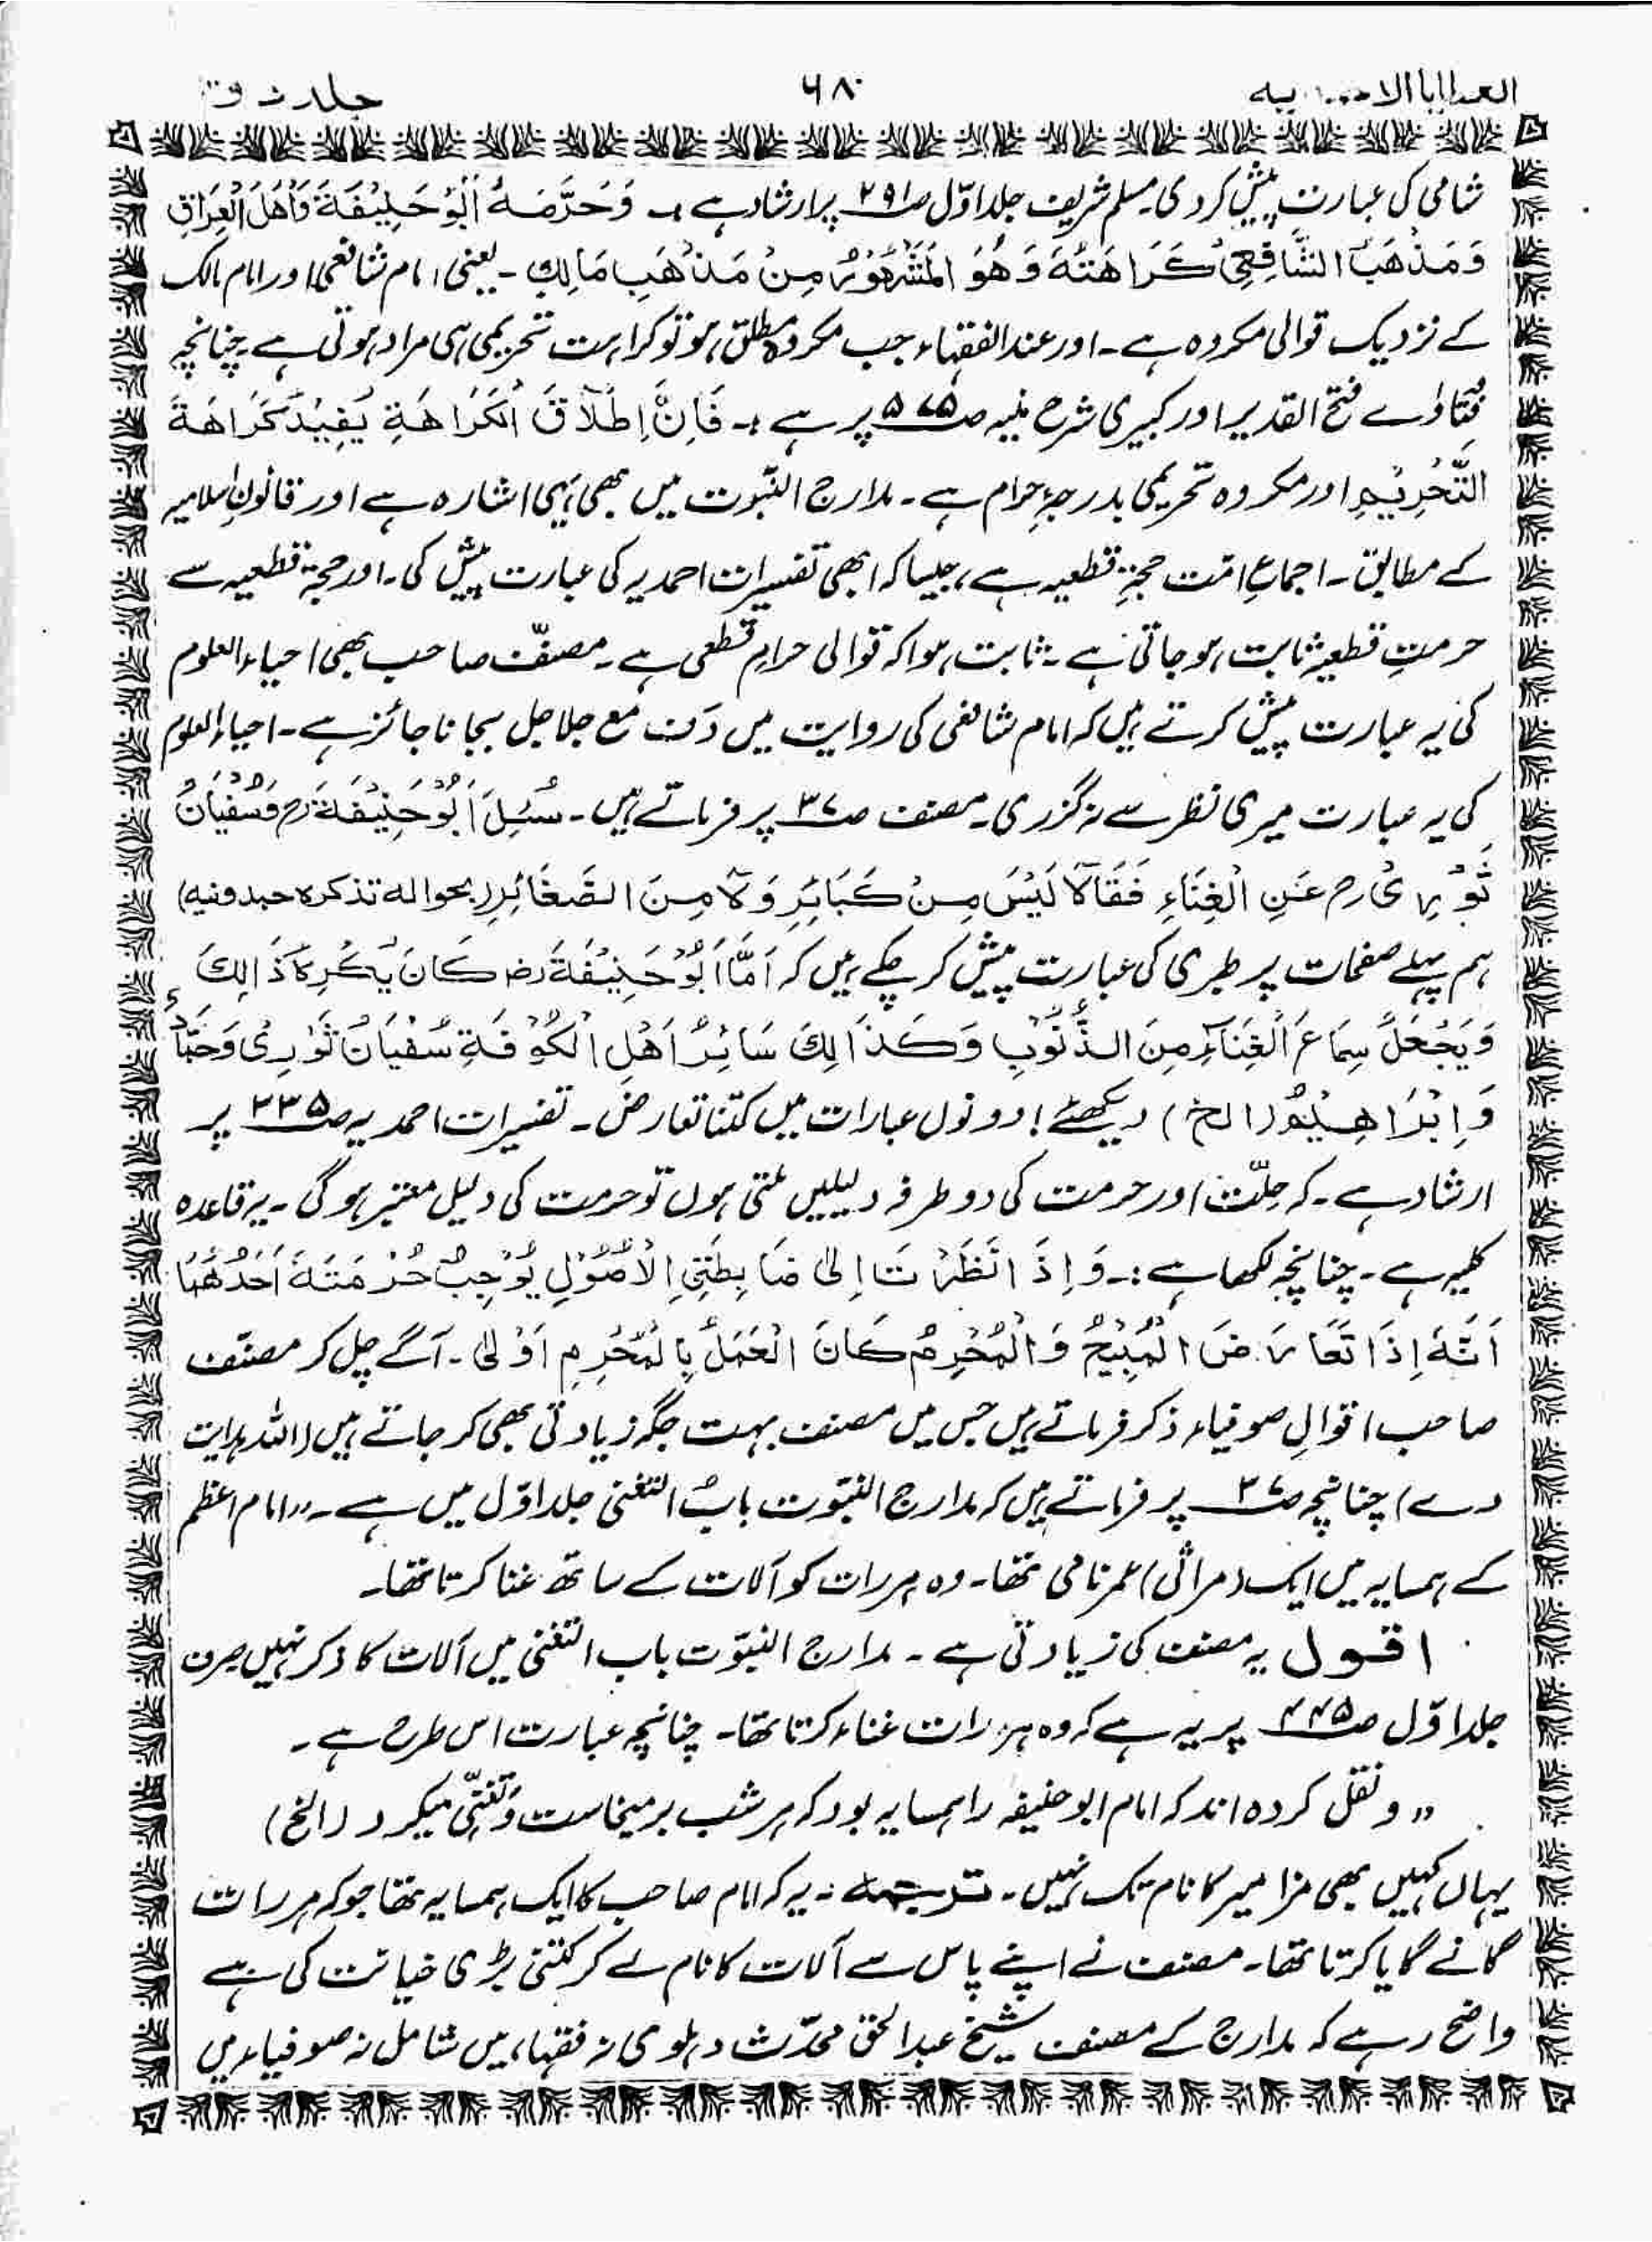 ۶۸۰
شامی کی عبارت پیش کر دی۔ مسلم شریف جلد اوّل ص۲۹۱ پر ارشاد ہے :۔ وَحَرَّمَهٗ اَبُوْ حَلِيْفَةَ وَاَهْلُ الْعِرَاقِ
وَمَذْهَبُ الشَّافِعِیْ كَرَاهَتُهٗ وَهُوَ الْمَشْهُوْرُ مِنْ مَذْهَبِ مَالِكٍ ۔ یعنی امام شافعی اور امام مالک
کے نزدیک قوالی مکروہ ہے۔ اور عندالفقہاء جب مکروہ مطلق ہو تو کراہت تحریمی ہی مراد ہوتی ہے۔ چنانچہ
فتاوٰے فتح القدیر اور کبیری شرح منیہ ص۵۷۵ پر ہے :۔ فَاِنَّ اِطْلَاقَ الْكَرَاهَةِ يُفِيْدُ كَرَاهَةَ
التَّحْرِيْمِ اور مکروہ تحریمی بدرجۂ حرام ہے۔ مدارج النبّوت میں بھی یہی اشارہ ہے اور قانونِ اسلامیہ
کے مطابق۔ اجماعِ امّت حجۃِ قطعیہ ہے، جیسا کہ ابھی تفسیرات احمدیہ کی عبارت پیش کی۔ اور حجۃ قطعیہ سے
حرمتِ قطعیہ ثابت ہو جاتی ہے۔ ثابت ہوا کہ قوالی حرامِ قطعی ہے۔ مصنّف صاحب بھی احیاء العلوم
کی یہ عبارت پیش کرتے ہیں کہ امام شافعی کی روایت میں دَف مع جلاجل بجانا جائز ہے۔ احیاء العلوم
کی یہ عبارت میری نظر سے نہ گزری۔ مصنف ص۳۷ پر فرماتے ہیں۔ سُئِلَ اَبُوْ حَنِيْفَةَ رح وَسُفْيَانُ
ثَوْرِیْ رح عَنِ الْغِنَاءِ فَقَالَا لَيْسَ مِنْ كَبَائِرِ وَلَا مِنَ الصَّغَائِرِ (بحواله تذكره حمدونیه)
ہم پہلے صفحات پر طبری کی عبارت پیش کر چکے ہیں کہ اَمَّا اَبُوْ حَنِيْفَةَ رض كَانَ يُكْرِهُ ذَالِكَ
وَيَجْعَلُ سِمَاعَ الْغِنَاءِ مِنَ الذُّنُوْبِ وَكَذَالِكَ سَائِرُ اَهْلِ الْكُوْفَةِ سُفْيَانُ ثَوْرِیْ وَحَمَّادُ
وَاِبْرَاهِيْمُ (الخ) دیکھئے! دونوں عبارات میں کتنا تعارض۔ تفسیرات احمدیہ ص۳۳۵ پر
ارشاد ہے۔ کہ حِلّت اور حرمت کی دو طرفہ دلیلیں ملتی ہوں تو حرمت کی دلیل معتبر ہو گی۔ یہ قاعدہ
کلیہ ہے۔ چنانچہ لکھا ہے :۔ وَاِذَ انَظَرْتَ اِلٰى ضَابِطَتِىِ الْاُصُوْلِ يُوْجِبُ حُرْمَتَهٗ اَحَدُهُمَا
اَنَّهٗ اِذَا تَعَارَضَ الْمُبِيْحُ وَالْمُحْرِمُ كَانَ الْعَمَلُ بِالْمُحْرِمِ اَوْلٰى۔ آگے چل کر مصنّف
صاحب اقوالِ صوفیاء ذکر فرماتے ہیں جس میں مصنف بہت جگہ زیادتی بھی کر جاتے ہیں (اللہ ہدایت
دے) چنانچہ ص۳۷ پر فرماتے ہیں کہ مدارج النبّوت بابُ التغنی جلد اوّل میں ہے۔ ،،امام اعظم
کے ہمسایہ میں ایک (مراثی) عمر نامی تھا۔ وہ ہر رات کو آلات کے ساتھ غنا کرتا تھا۔
اقول یہ مصنف کی زیادتی ہے۔ مدارج النبّوت باب التغنی میں آلات کا ذکر نہیں صرف
جلد اوّل ص۴۴۵ پر یہ ہے کہ وہ ہر رات غناء کرتا تھا۔ چنانچہ عبارت اس طرح ہے۔
،، و نقل کردہ اند کہ امام ابو حنیفہ را ہمسایہ بود کہ ہر شب برمیخاست وَتغنّی میکرد (الخ)
یہاں کہیں بھی مزامیر کا نام تک نہیں۔ ترجمہ :۔ یہ کہ امام صاحب کا ایک ہمسایہ تھا جو کہ ہر رات
گانے گایا کرتا تھا۔ مصنف نے اپنے پاس سے آلات کا نام لے کر کتنی بڑی خیانت کی ہے
واضح رہے کہ مدارج کے مصنف شیخ عبدالحق محدّث دہلوی نہ فقہاء میں شامل نہ صوفیاء میں